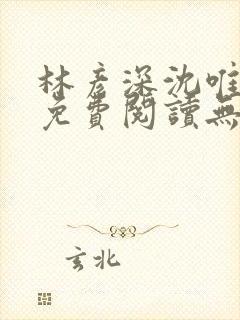 林彥深沈唯
免費閱讀無
玄北